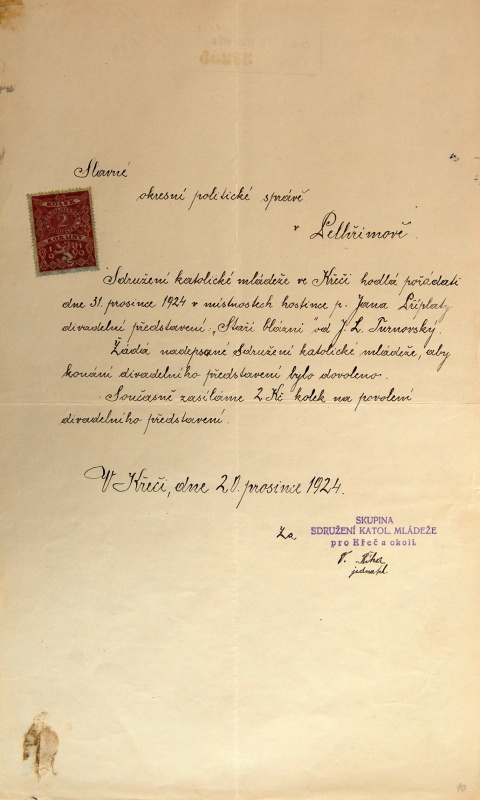 Slavné
okresní politické správě
v Pelhřimově.
KOLEK
2
KORUNY
Sdružení katolické mládeže ve Křeči hodlá pořádati
dne 31. prosince 1924 v místnostech hostince p. Jana Příplaty
divadelní představení: „Staří blázni“ od J. L. Turnovský.
Žádá nadepsané Sdružení katolické mládeže, aby
konání divadelního představení bylo dovoleno.
Současně zasíláme 2 Kč kolek na povolení
divadelního představení.
V Křeči, dne 20. prosince 1924.
Za SKUPINA
SDRUŽENÍ KATOL. MLÁDEŽE
pro Křeč a okolí.
jednatel.
10